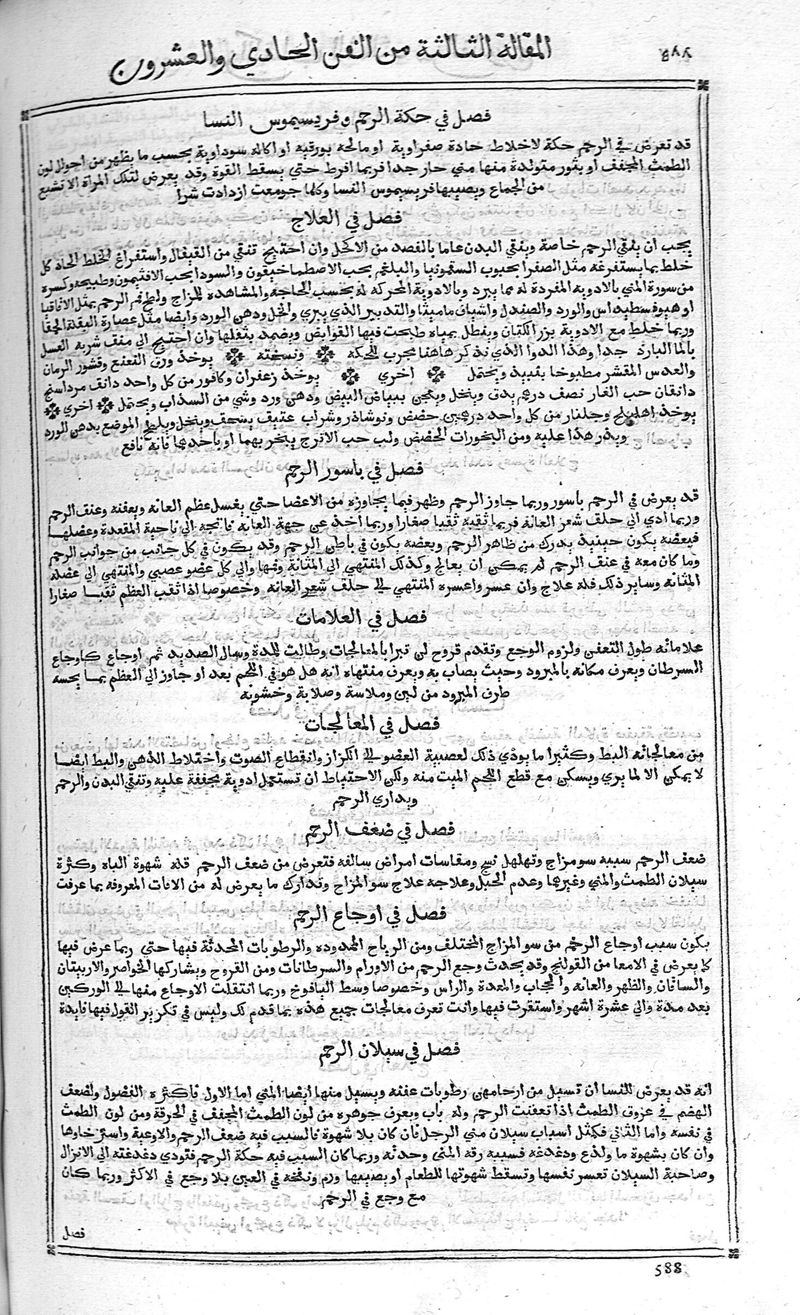 المقالة الثالثة من الفن الحادي والعشرون
٥٨٨
فصل في حكة الرحم وفريسيموس النسا
قد تعرض في الرحم حكة لاخلاط حادة صفراوية او مالحه بورقيه او اكاله سوداوية بحسب ما يظهر من احوال لون
الطمث المجفف او بثور متولدة منها مني حار جدا فربما افرط حتي يسقط القوة وقد يعرض لتلك المراة الا تشبع
من الجماع ويصيبها فريسيموس النسا وكلما جومعت ازدادت شرا
فصل في العلاج
يجب ان ينقي الرحم خاصة وينقي البدن عاما بالفصد من الاكحل وان احتيج تنقي من القيفال واستفراغ الخلط الحاد كل
خلط بما يستفرغه مثل الصفرا بحبوب السقمونيا والبلغم بحب الاصطماخيقون والسودا بحب الافتيمون وطبيخه وكسره
من سورة المني بالادوية المفردة له مما يبرد وبالادوية المحركه له بحسب الحاجة والمشاهده للمزاج ولطخ فم الرحم بمثل الاقاقيا
او هيوفسطيداس والورد والصندل واشياف ماميثا والتدبير الذي يبري والخل ودهن الورد وايضا مثل عصارة البقلة الحمقا
وربما خلط مع الادوية بزر الكتان وينطل بمياه طبخت فيها القوابض ويضمد بثفلها وان احتيج الي منف شربة العسل
بالما البارد جدا وهذا الدوا الذي نذكر هاهنا مجرب للحكة ونسخته يوخذ ورق النعنع وقشور الرمان
والعدس المقشر مطبوخا بنبيذ ويحتمل اخري يوخذ زعفران وكافور من كل واحد دانق مرداسنج
دانقان حب الغار نصف درهم يدق وينخل ويعجن ببياض البيض ودهن ورد وشي من السذاب ويحتمل اخري
يوخذ اهليلج وجلنار من كل واحد درهمين حضض ونوشاذر وشراب عتيق يسحق وينخل ويلطخ الموضع بدهن الورد
ويذر هذا عليه ومن البخورات الحضض ولب حب الاترج يتبخر بهما او باحدهما فانه نافع
فصل في باسور الرحم
قد يعرض في الرحم باسور وربما جاوز الرحم وظهر فيما يجاوزه من الاعضا حتي يغسل عظم العانه ويعفنه وعنف الرحم
وربما ادي الي حلف شعر العانة فربما ثقبه ثقبا صغارا وربما اخذ عن جهة العانه ناتجة الي ناحية المقعدة وعضلها
فبعضه يكون حينيذ يدرك من ظاهر الرحم وبعضه يكون في باطن الرحم وقد يكون في كل جانب من جوانب الرحم
وما كان معه في عنق الرحم لم يمكن ان يعالج وكذلك المنتهي الي المثانة وفمها والي كل عضو عصبي والمنتهي الي عضله
المثانه وساير ذلك فله علاج وان عسر واعسره المنتهي الي حلف شعر العانه وخصوصا اذا ثقب العظم ثقبا صغارا
فصل في العلامات
علاماته طول التعفن ولزوم الوجع وتقدم قروح لن تبرا بالمعالجات وطالت المدة وسال الصديد ثم اوجاع كاوجاع
السرطان ويعرف مكانه بالمبرود وحيث يصاب به ويعرف منتهاه انه هل هو في اللحم بعد او جاوز الي العظم بما يحسه
طرف المبرود من لين وملاسة وصلابة وخشونه
فصل في المعالجات
من معالجاته البط وكثيرا ما يودي ذلك لعصبية العضو الي الكزاز وانقطاع الصوت واختلاط الذهن والبط ايضا
لا يمكن الا لما يري ويسكن مع قطع اللحم الميت منه ولكن الاحتياط ان تستعمل ادوية مجففة عليه وتنقي البدن والرحم
ويداري الرحم
فصل في ضعف الرحم
ضعف الرحم سببه سو مزاج وتهلهل نسج ومقاسات امراض سالفه فتعرض من ضعف الرحم قله شهوة الباه وكثرة
سيلان الطمث والمني وغيرهما وعدم الحبل وعلاجه علاج سو المزاج وتدارك ما يعرض له من الافات المعروفه بما عرفت
فصل في اوجاع الرحم
يكون سبب اوجاع الرحم من سو المزاج المختلف ومن الرياح الممدوده والرطوبات المحدثة فيها حتي ربما عرض فيها
كما يعرض في الامعا من القولنج وقد يحدث وجع الرحم من الاورام والسرطانات ومن القروح ويشاركها الخواصر والاربيتان
والساقان والظهر والعانه والحجاب والمعدة والراس وخصوصا وسط اليافوخ وربما انتقلت الاوجاع منها الي الوركين
بعد مدة والي عشرة اشهر واستقرت فيها وانت تعرف معالجات جميع هذه بما قدم لك وليس في تكرير القول فيها فايدة
فصل في سيلان الرحم
انه قد يعرض للنسا ان تسيل من ارحامهن رطوبات عفنه ويسيل منها ايضا المني اما الاول فلكثرة الفضول ولضعف
الهضم في عروق الطمث اذا تعفنت الرحم وله باب ويعرف جوهره من لون الطمث المجفف في الخرقة ومن لون الطمث
في نفسه واما الثاني فكمثل اسباب سيلان مني الرجل فان كان بلا شهوة فالسبب فيه ضعف الرحم والاوعية واسترخاوها
وان كان بشهوة ما ولذع ودغدغه فسببه رقه المني وحدته وربما كان السبب فيه حكة الرحم فتودي دغدغته الي الانزال
وصاحبة السيلان تعسر نفسها وتسقط شهوتها للطعام او يصيبها ورم ونفخه في العين بلا وجع في الاكثر وربما كان
مع وجع في الرحم
فصل
588